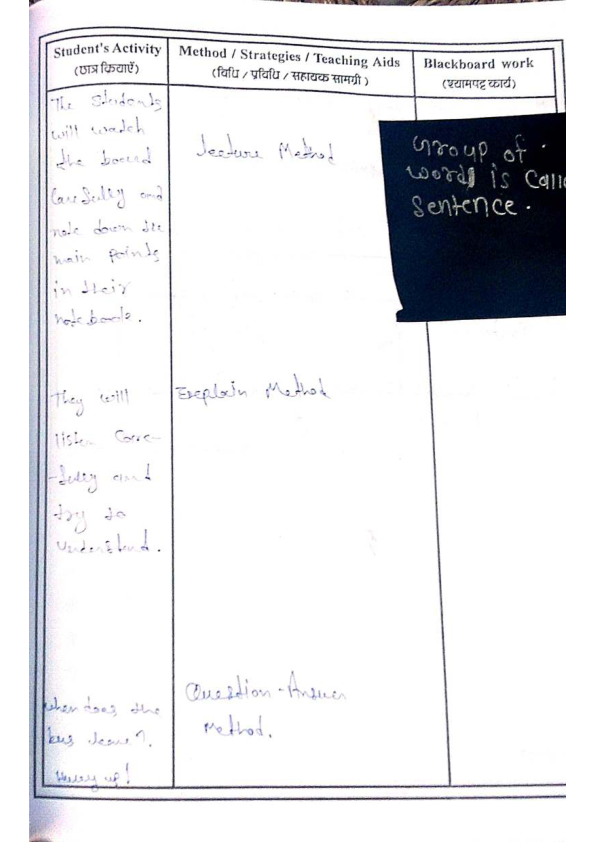 Student's Activity
(छात्र क्रियाएँ)
Method / Strategies / Teaching Aids
(विधि / प्रविधि / सहायक सामग्री )
Blackboard work
(श्यामपट्ट कार्य)
The Students
will watch
the board
Carefully and
note down the
main points
in their
notebook.
Lecture Method
Group of
words is Calle
Sentence.
They will
listen Care-
-fully and
try to
Understand.
Explain Method
when does the
bus leave ?.
Hurry up!
Question-Answer
Method.